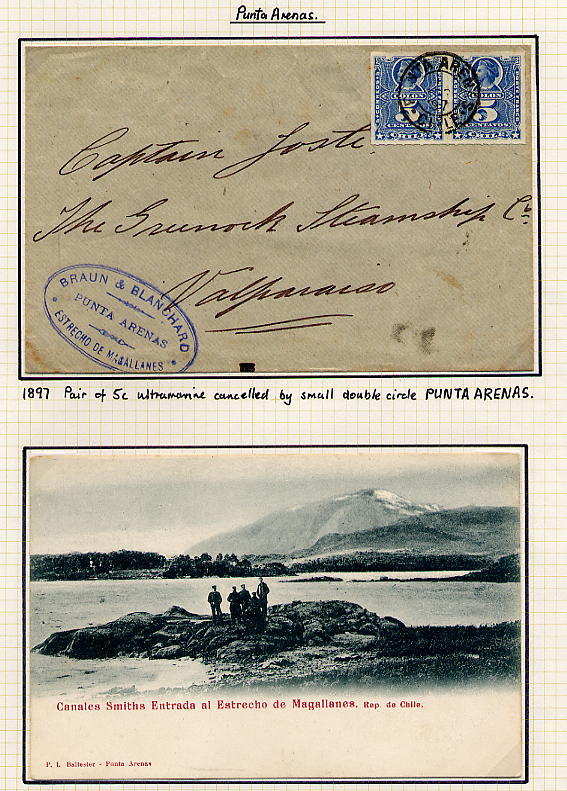 Punta Arenas.
COLON COLON
5 5
CENTAVOS CENTAVOS
Captain Joste.
The Greenock Steamship Co.
Valparaiso
BRAUN & BLANCHARD
PUNTA ARENAS
ESTRECHO DE MAGALLANES
1897 Pair of 5c ultramarine cancelled by small double circle PUNTA ARENAS.
Canales Smiths Entrada al Estrecho de Magallanes. Rep. de Chile.
P. I. Ballester - Punta Arenas